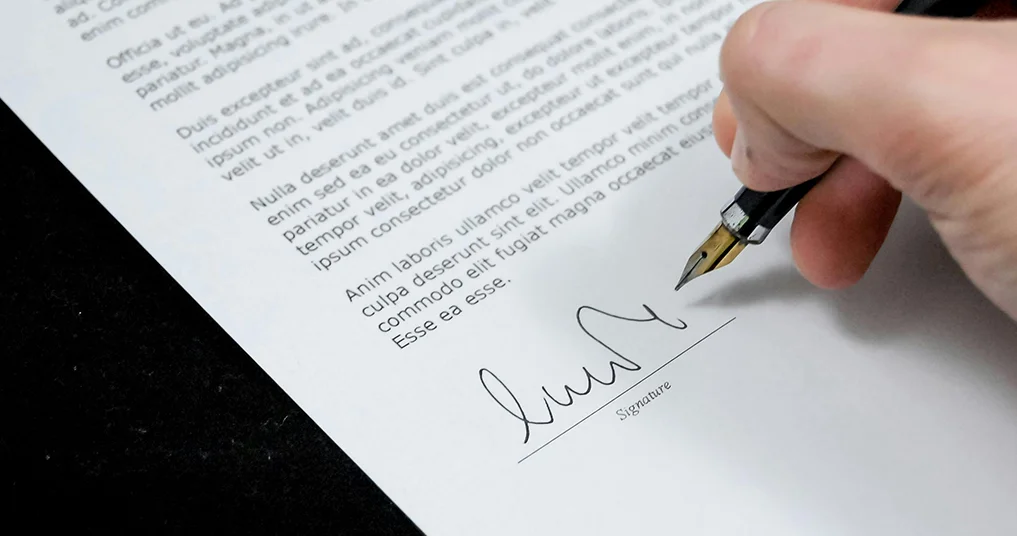 ad. Co
enim comm
Officia ut eu. Ad
esse, voluptate adip
pariatur. Magna, in ut
mollit adipisicing irure. In
Duis excepteur sint ad, consequat
incididunt et ad ea occaecat cupidatat
ipsum non. Adipisicing veniam mollit
velit ut in, velit duis id. Sint culpa in, velit
Nulla deserunt amet duis est consequat
enim sed ea eu consectetur ut, do dolore laboris,
pariatur in ea dolor velit, excepteur mollit enim, in
tempor velit, adipisicing, excepteur ut excepteur
ipsum consectetur dolor non occaecat sunt qui
Anim laboris ullamco velit tempor velit tempor
culpa deserunt sint elit. Ullamco minim con
commodo elit fugiat magna occaecat eius
Esse ea esse.
Signature